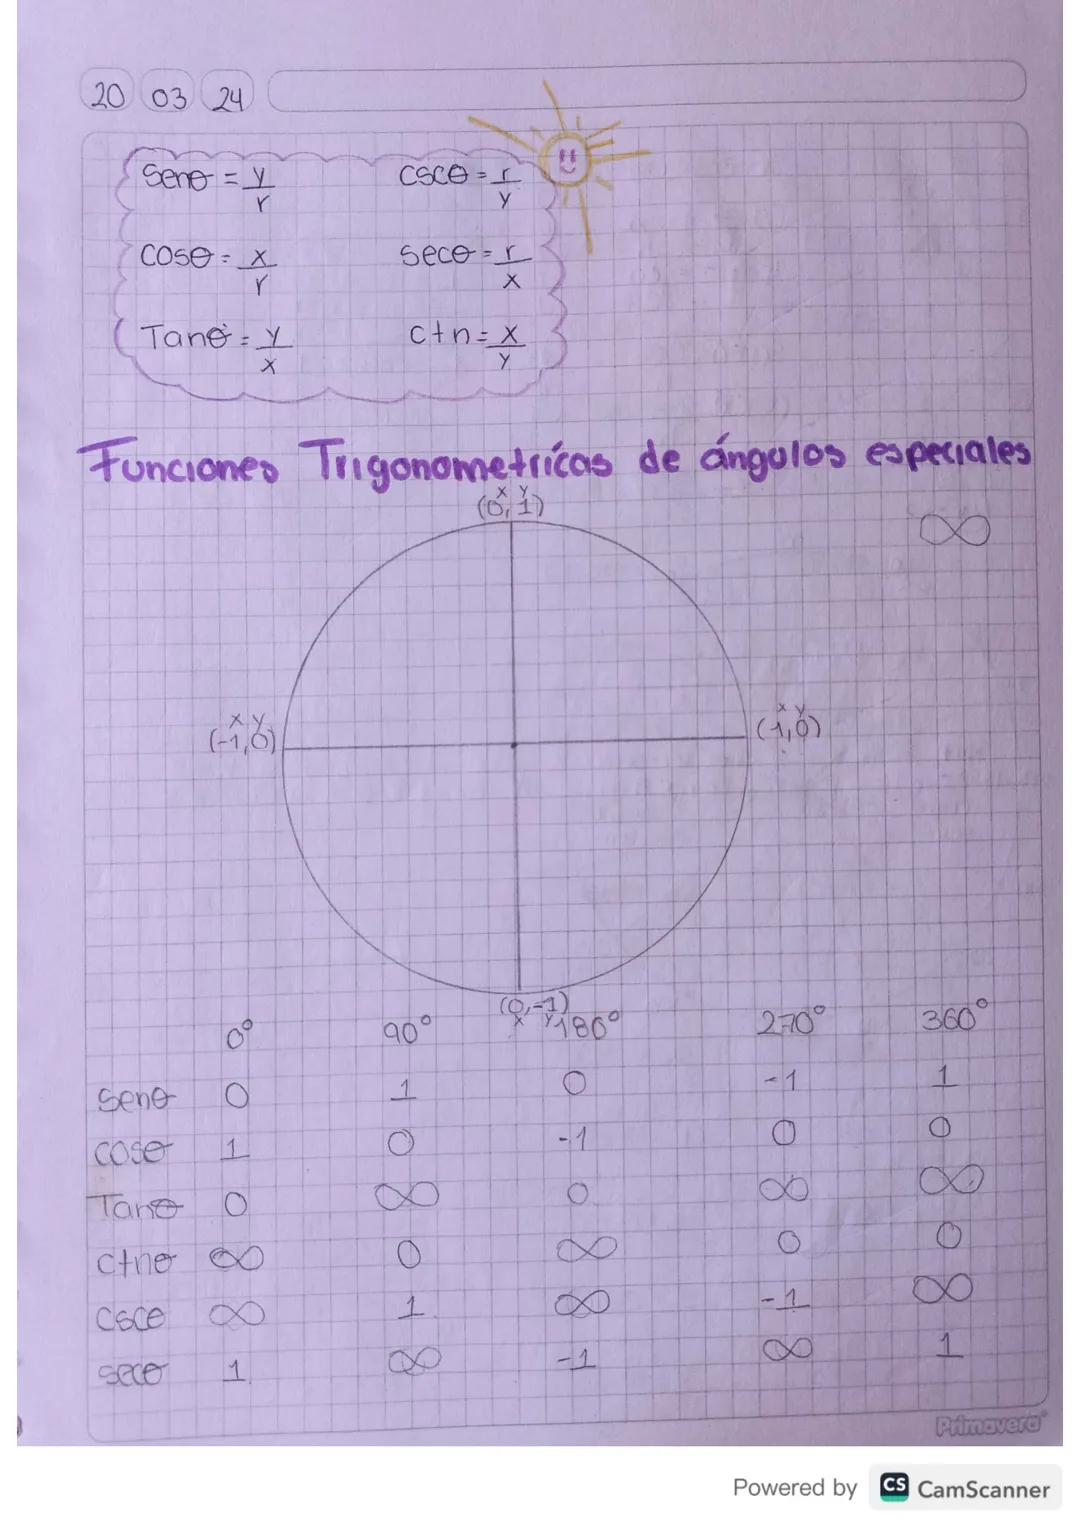 20 03 24
Senθ = y/r cscθ = r/y
cosθ = x/r secθ = r/x
Tanθ = y/x ctn = x/y
Funciones Trigonometrícas de ángulos especiales
x y
(0, 1)
∞
x y
(-1,0)
x y
(1,0)
(0,-1)
x y
0° 90° 180° 270° 360°
Senθ 0 1 0 -1 1
cosθ 1 0 -1 0 0
Tanθ 0 ∞ 0 ∞ ∞
ctnθ ∞ 0 ∞ 0 0
Cscθ ∞ 1 ∞ -1 ∞
secθ 1 ∞ -1 ∞ 1
Primavera
Powered by CS CamScanner